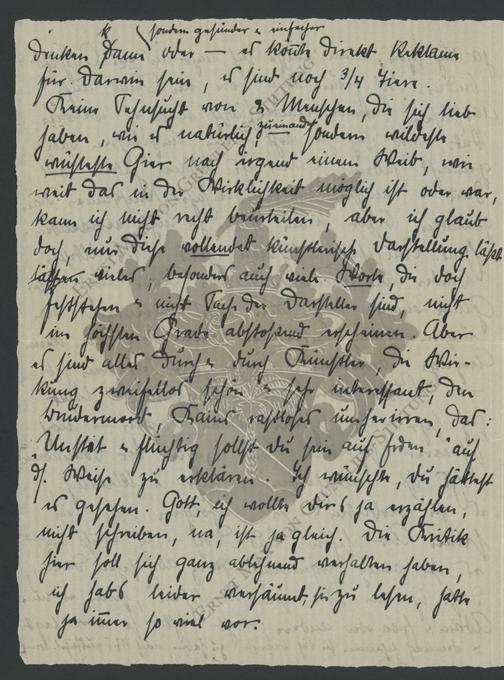 sondern gesünder u. einfacher
denken, Dame oder — es könnte direkt Reklame
für Darwin sein, es sind noch 3/4 Tiere.
Keine Sehnsucht von 2 Menschen, die sich lieb
haben, wie es natürlich, zueinander sondern wildeste
wüsteste Gier nach irgend einem Weib, wie
weit das in der Wirklichkeit möglich ist oder war,
kann ich nicht recht beurteilen, aber ich glaub
doch, nur diese vollendet künstlerische Darstellung lässt
vieles, besonders auch viele Worte, die doch
feststehen u. nicht Sache der Darsteller sind, nicht
im höchsten Grade abstoßend erscheinen. Aber
es sind alles durch u. durch Künstler, die Wir-
kung zweifellos schön u. sehr interessant, den
Brudermord, Kains rastloses umherirren, das:
"Unstät u. flüchtig sollst Du sein auf Erden" auf
ds. Weise zu erklären. Ich wünschte, Du hättest
es gesehen. Gott, ich wollte Dirs ja erzählen,
nicht schreiben, na, ist ja gleich. Die Kritik
hier soll sich ganz ablehnend verhalten haben,
ich habs leider versäumt, sie zu lesen, hatte
ja immer so viel vor.